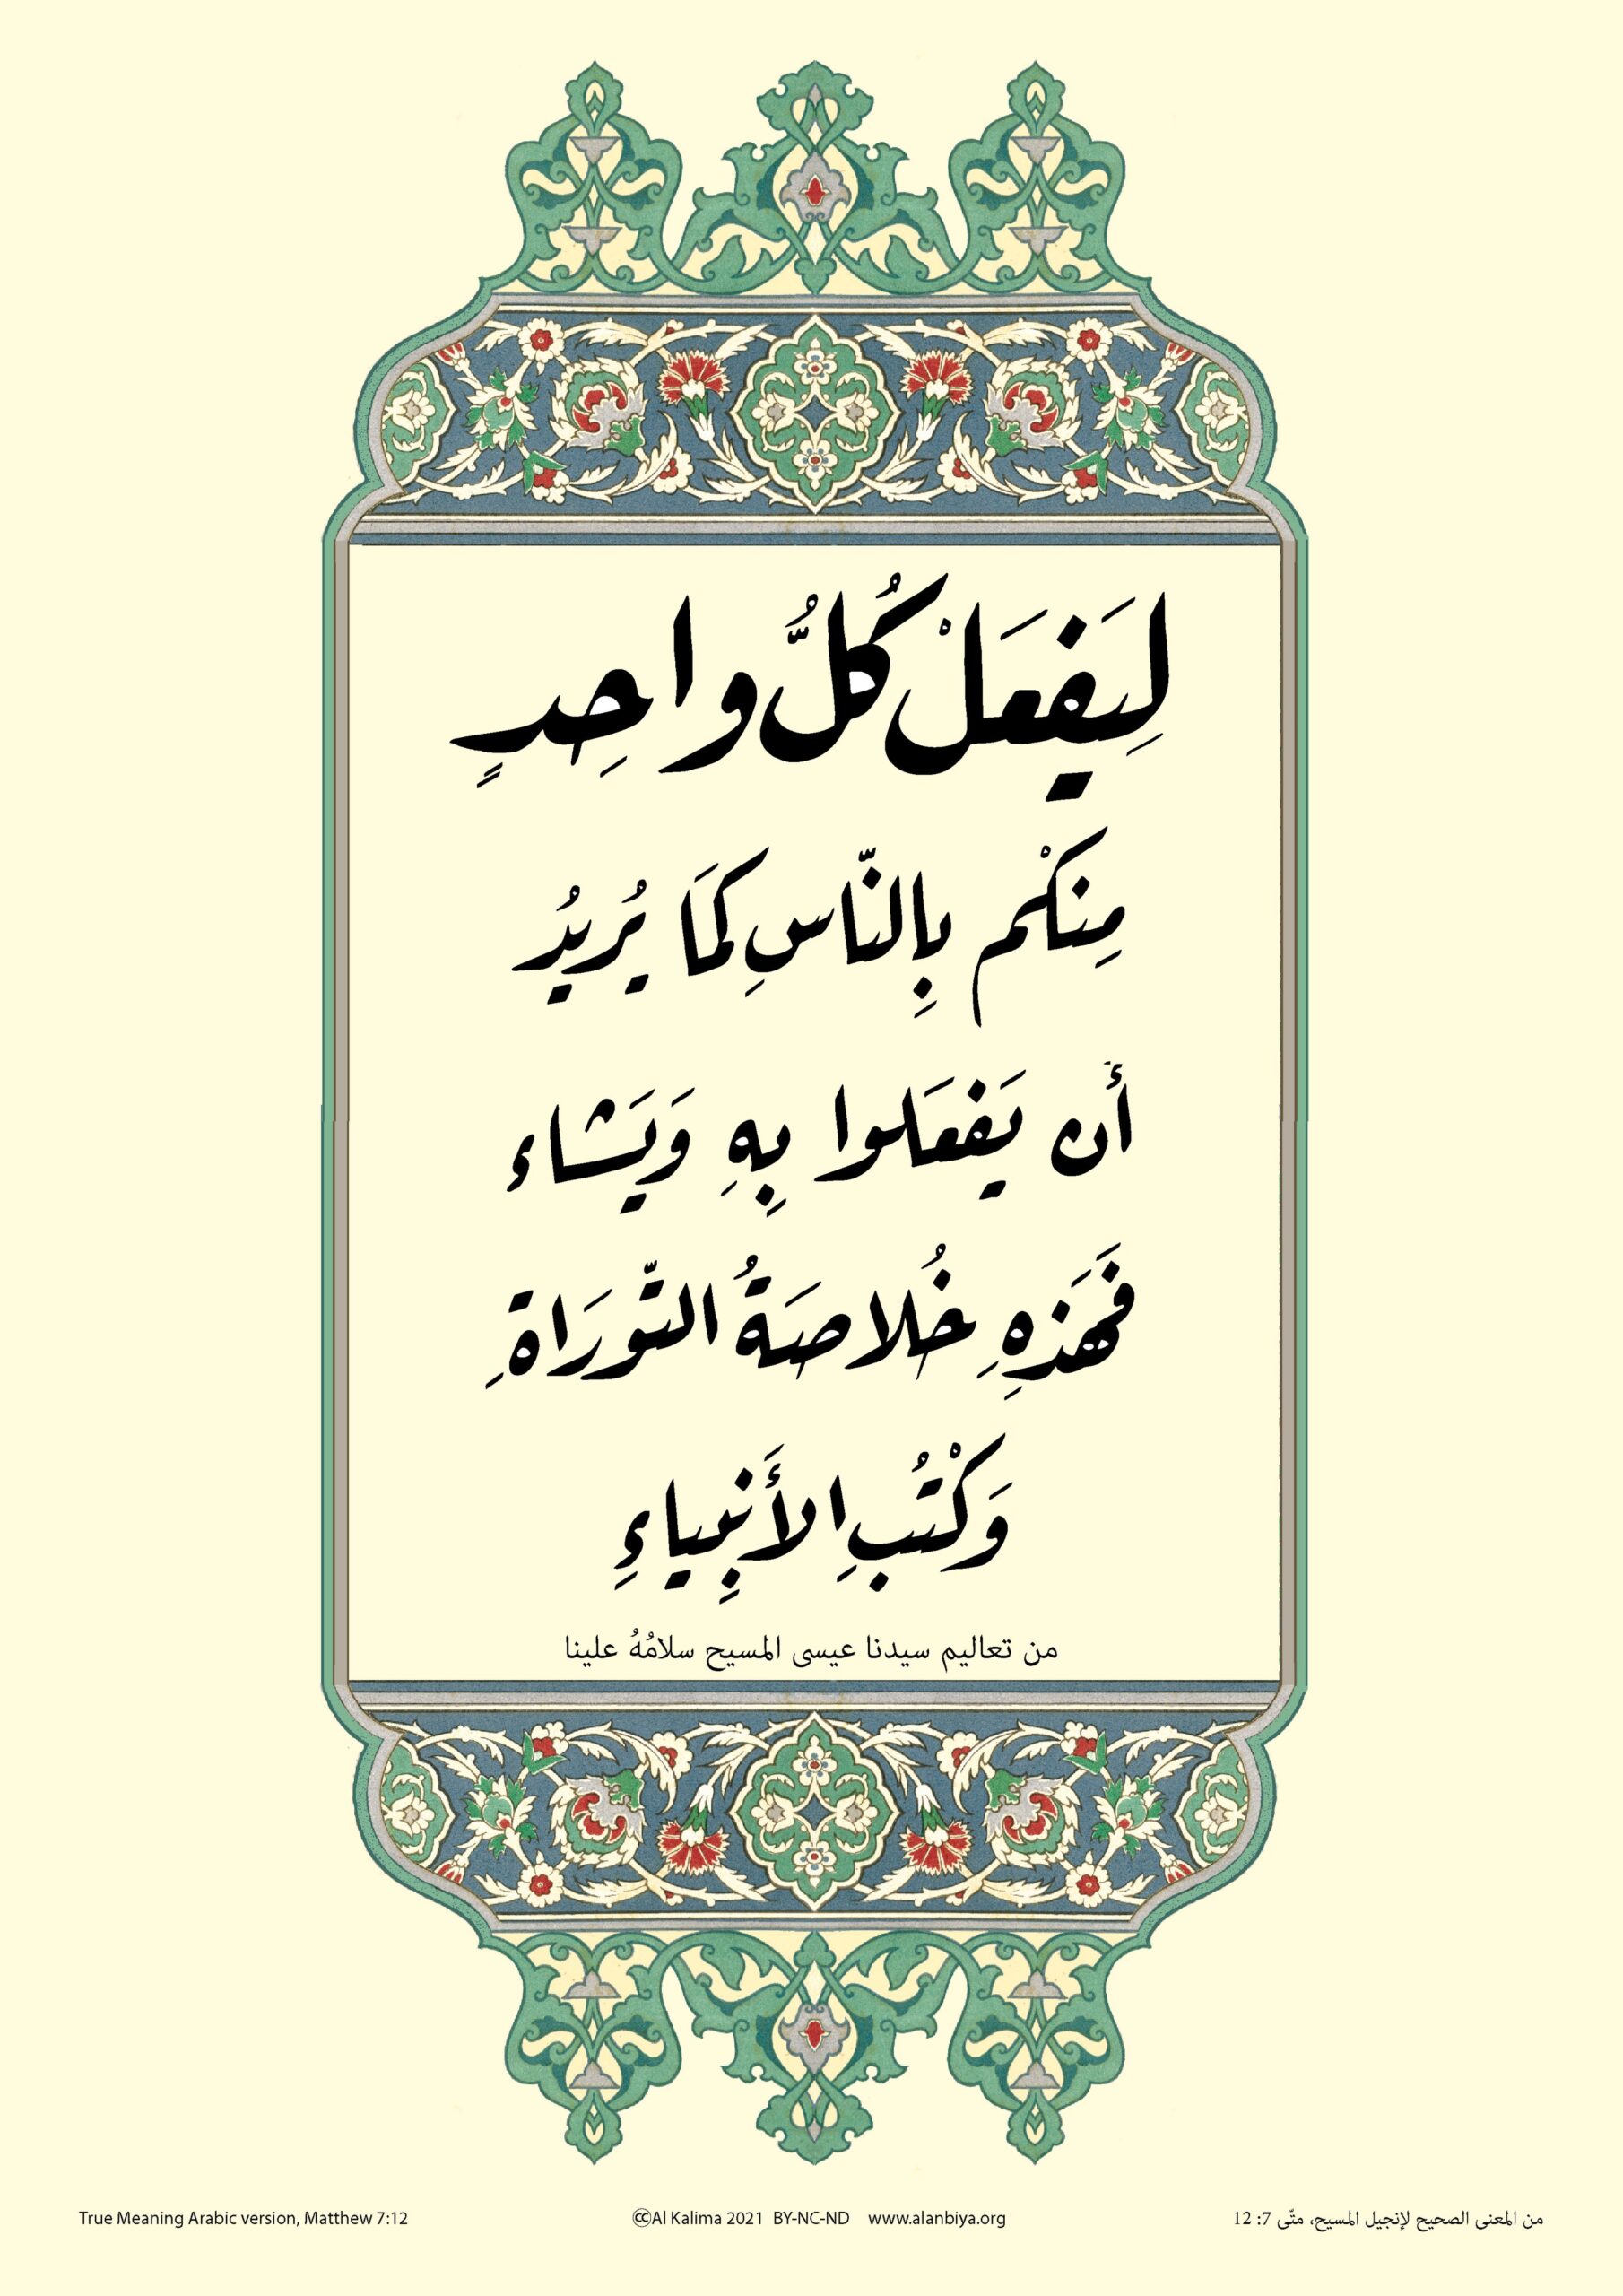 لِيَفعَلْ كُلُّ واحِدٍ
مِنكُم بِالنّاسِ كَمَا يُرِيدُ
أَن يَفعَلوا بِهِ وَيَشاء
فَهَذِهِ خُلاصَةُ التّورَاةِ
وَكْتُبِ الأَنبِياءِ
من تعاليم سيدنا عيسى المسيح سلامُهُ علينا
True Meaning Arabic version, Matthew 7:12
🅭Al Kalima 2021 BY-NC-ND www.alanbiya.org
من المعنى الصحيح لإنجيل المسيح، متّى 7: 12